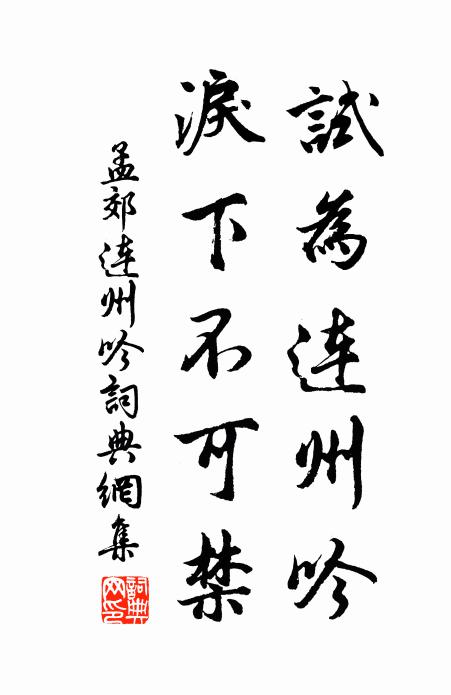 試為連州吟
淚下不可禁
孟郊連州吟詞典網集
詞典
网印